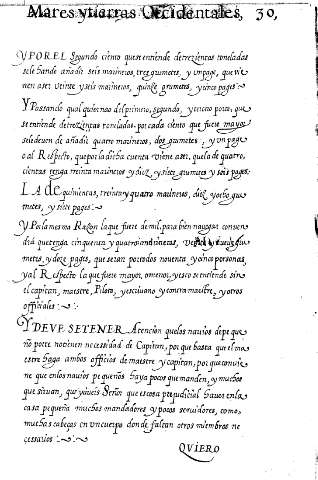 Mares y tierras Occidentales, 30,
Y POR EL Segundo ciento que se entiende detrezientas toneladas
sele hande añadir seis marineros, tres grumetes, y un page, que vie-
nen aser veinte y seis marineros, quinze grumetes, y cinco pages
Y Passando qual quier nao del primero, segundo, y tercero porte, que
se entiende detrezientas toneladas, por cada ciento que fuere mayor
sele deuen de añadir quatro marineros, dos grumetes, y un page
o al Respecto, que por la dicha cuenta viene aser, que la de quatro,
cientas tenga treinta marineros y diez, y siete, grumetes y seis pages
LA de quinientas, treinta y quatro marineros, diez y ocho gru-
metes, y siete pages
Y Por la mesma Razon la que fuere de mil, para bien nauegar conuen-
dra que tenga cinquenta y quatro marineros, gru-
metes, y doze pages, que serán por todos nouenta y cinco personas,
y al Respecto la que fuere mayor, o menor, y esto se entiende sin
el capitan, maestre, Piloto, y escriuano y contra maestre, y otros
officiales
Y DEVE SE TENER Atencion que los nauios de peque
ño porte no tienen necessidad de Capitan, por que basta que el ma
estre haga ambos officios de maestre y capitan, por que conuie
ne que en los nauios pequeños haya pocos que manden, y muchos
que siruan, que ya veis Señor que es cosa prejudicial hauer en la
casa pequeña muchos mandadores y pocos seruidores, como
muchas cabeças en un cuerpo donde faltan otros miembros ne
cessarios
QVIERO